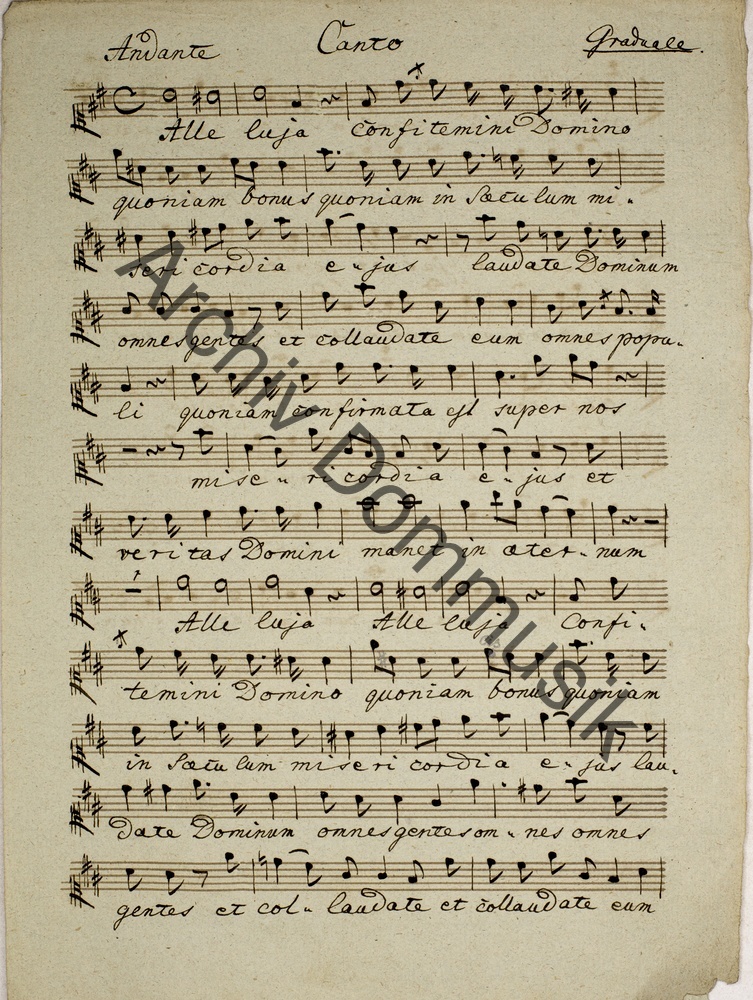 Andante Canto Graduale.
Alle luja confitemini Domino
quoniam bonus quoniam in Sæculum mi-
seri cordia e-jus laudate Dominum
omnes gentes et collaudate eum omnes popu-
li quoniam confirmata est super nos
mise-ri cordia e-jus et
veritas Domini manet in æter-num
Alle luja Alle luja Confi-
temini Domino quoniam bonus quoniam
in Sæculum miseri cordia e-jus lau-
date Dominum omnes gentes om-nes omnes
gentes et col-laudate et collaudate eum
Archiv Dommusik